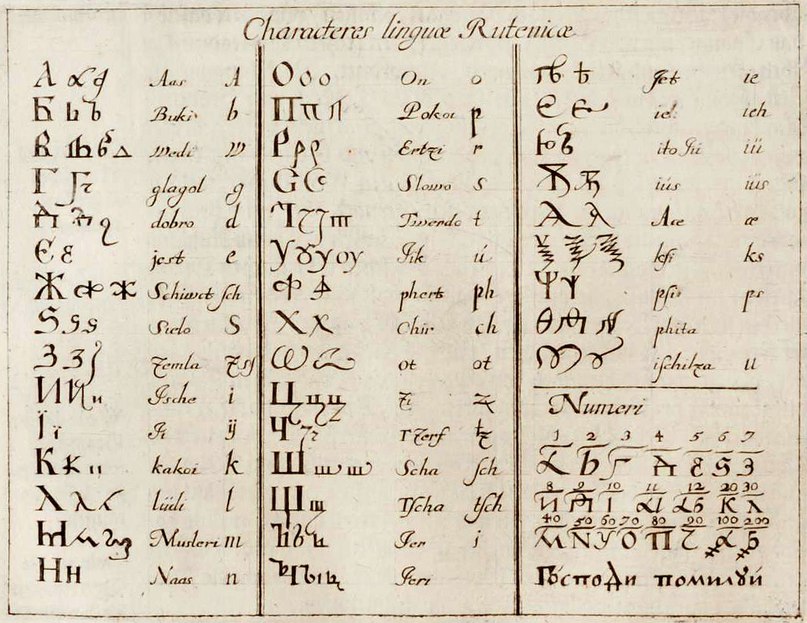 Characteres linguæ Rutenicæ
А Aas A
Б Ь Ъ Buki b
В wedi w
Г glagol g
Д dobro d
Є ε jest e
Ж ж Schiwet sch
Ѕ ѕ ѕ Sielo S
З З Zemla
И Ische i
Ї ї Ii ij
К к kakoi k
Λ λ lüdi l
М Musleti m
Н н Naas n
О о о On o
П п Pokoi p
Р р р Ertzi r
С С Slowo s
т Twerdo t
У ꙋ у оу Iik ú
Ф phert ph
Х х Chir ch
Ѡ ot ot
Ц ц ц zi
Ч
Ш ш ш Scha sch
Щ щ Tscha tsch
Ъ Ier i
Ieri
Ѣ Jet ie
Є є ie ieh
Ю ito Iü iü
Ѫ iüs iüs
Ѧ Ase æ
Ѯ ksi ks
Ѱ psi ps
Ѳ phita
Ѵ ischitza u
Numeri
1 2 3 4 5 6 7
А Б Г Д Е Ѕ З
8 9 10 11 12 20 30
И І АІ К Λ
40 50 60 70 80 90 100 200
М N О П
Господи помилꙋи